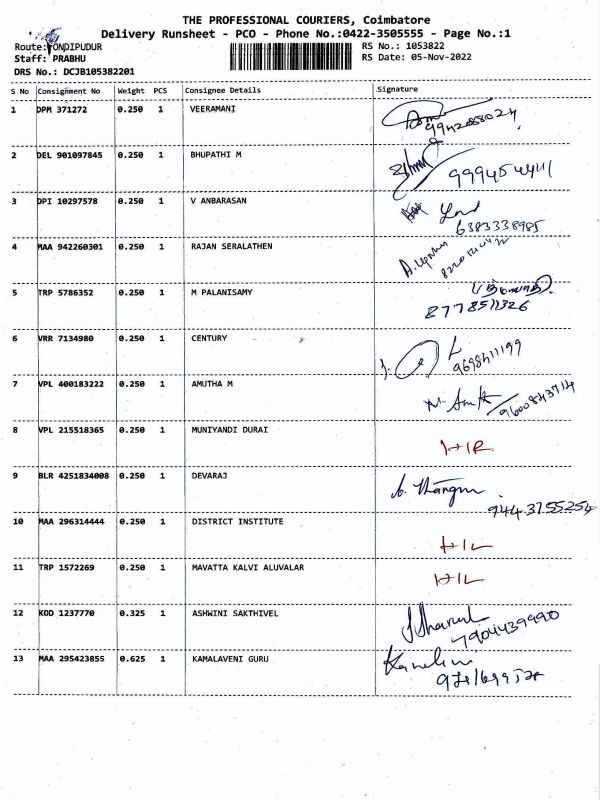 THE PROFESSIONAL COURIERS, Coimbatore
Delivery Runsheet - PCO - Phone No.:0422-3505555 - Page No.:1
Route: ONDIPUDUR RS No.: 1053822
Staff: PRABHU RS Date: 05-Nov-2022
DRS No.: DCJB105382201
S No Consignment No Weight PCS Consignee Details Signature
1 DPM 371272 0.250 1 VEERAMANI
2 DEL 901097845 0.250 1 BHUPATHI M
3 DPI 10297578 0.250 1 V ANBARASAN
6383338985
4 MAA 942260301 0.250 1 RAJAN SERALATHEN
5 TRP 5786352 0.250 1 M PALANISAMY
8778511326
6 VRR 7134980 0.250 1 CENTURY
7 VPL 400183222 0.250 1 AMUTHA M
9600843714
8 VPL 215518365 0.250 1 MUNIYANDI DURAI
9 BLR 4251834008 0.250 1 DEVARAJ
9443755254
10 MAA 296314444 0.250 1 DISTRICT INSTITUTE
11 TRP 1572269 0.250 1 MAVATTA KALVI ALUVALAR
12 KOD 1237770 0.325 1 ASHWINI SAKTHIVEL
7904439990
13 MAA 295423855 0.625 1 KAMALAVENI GURU